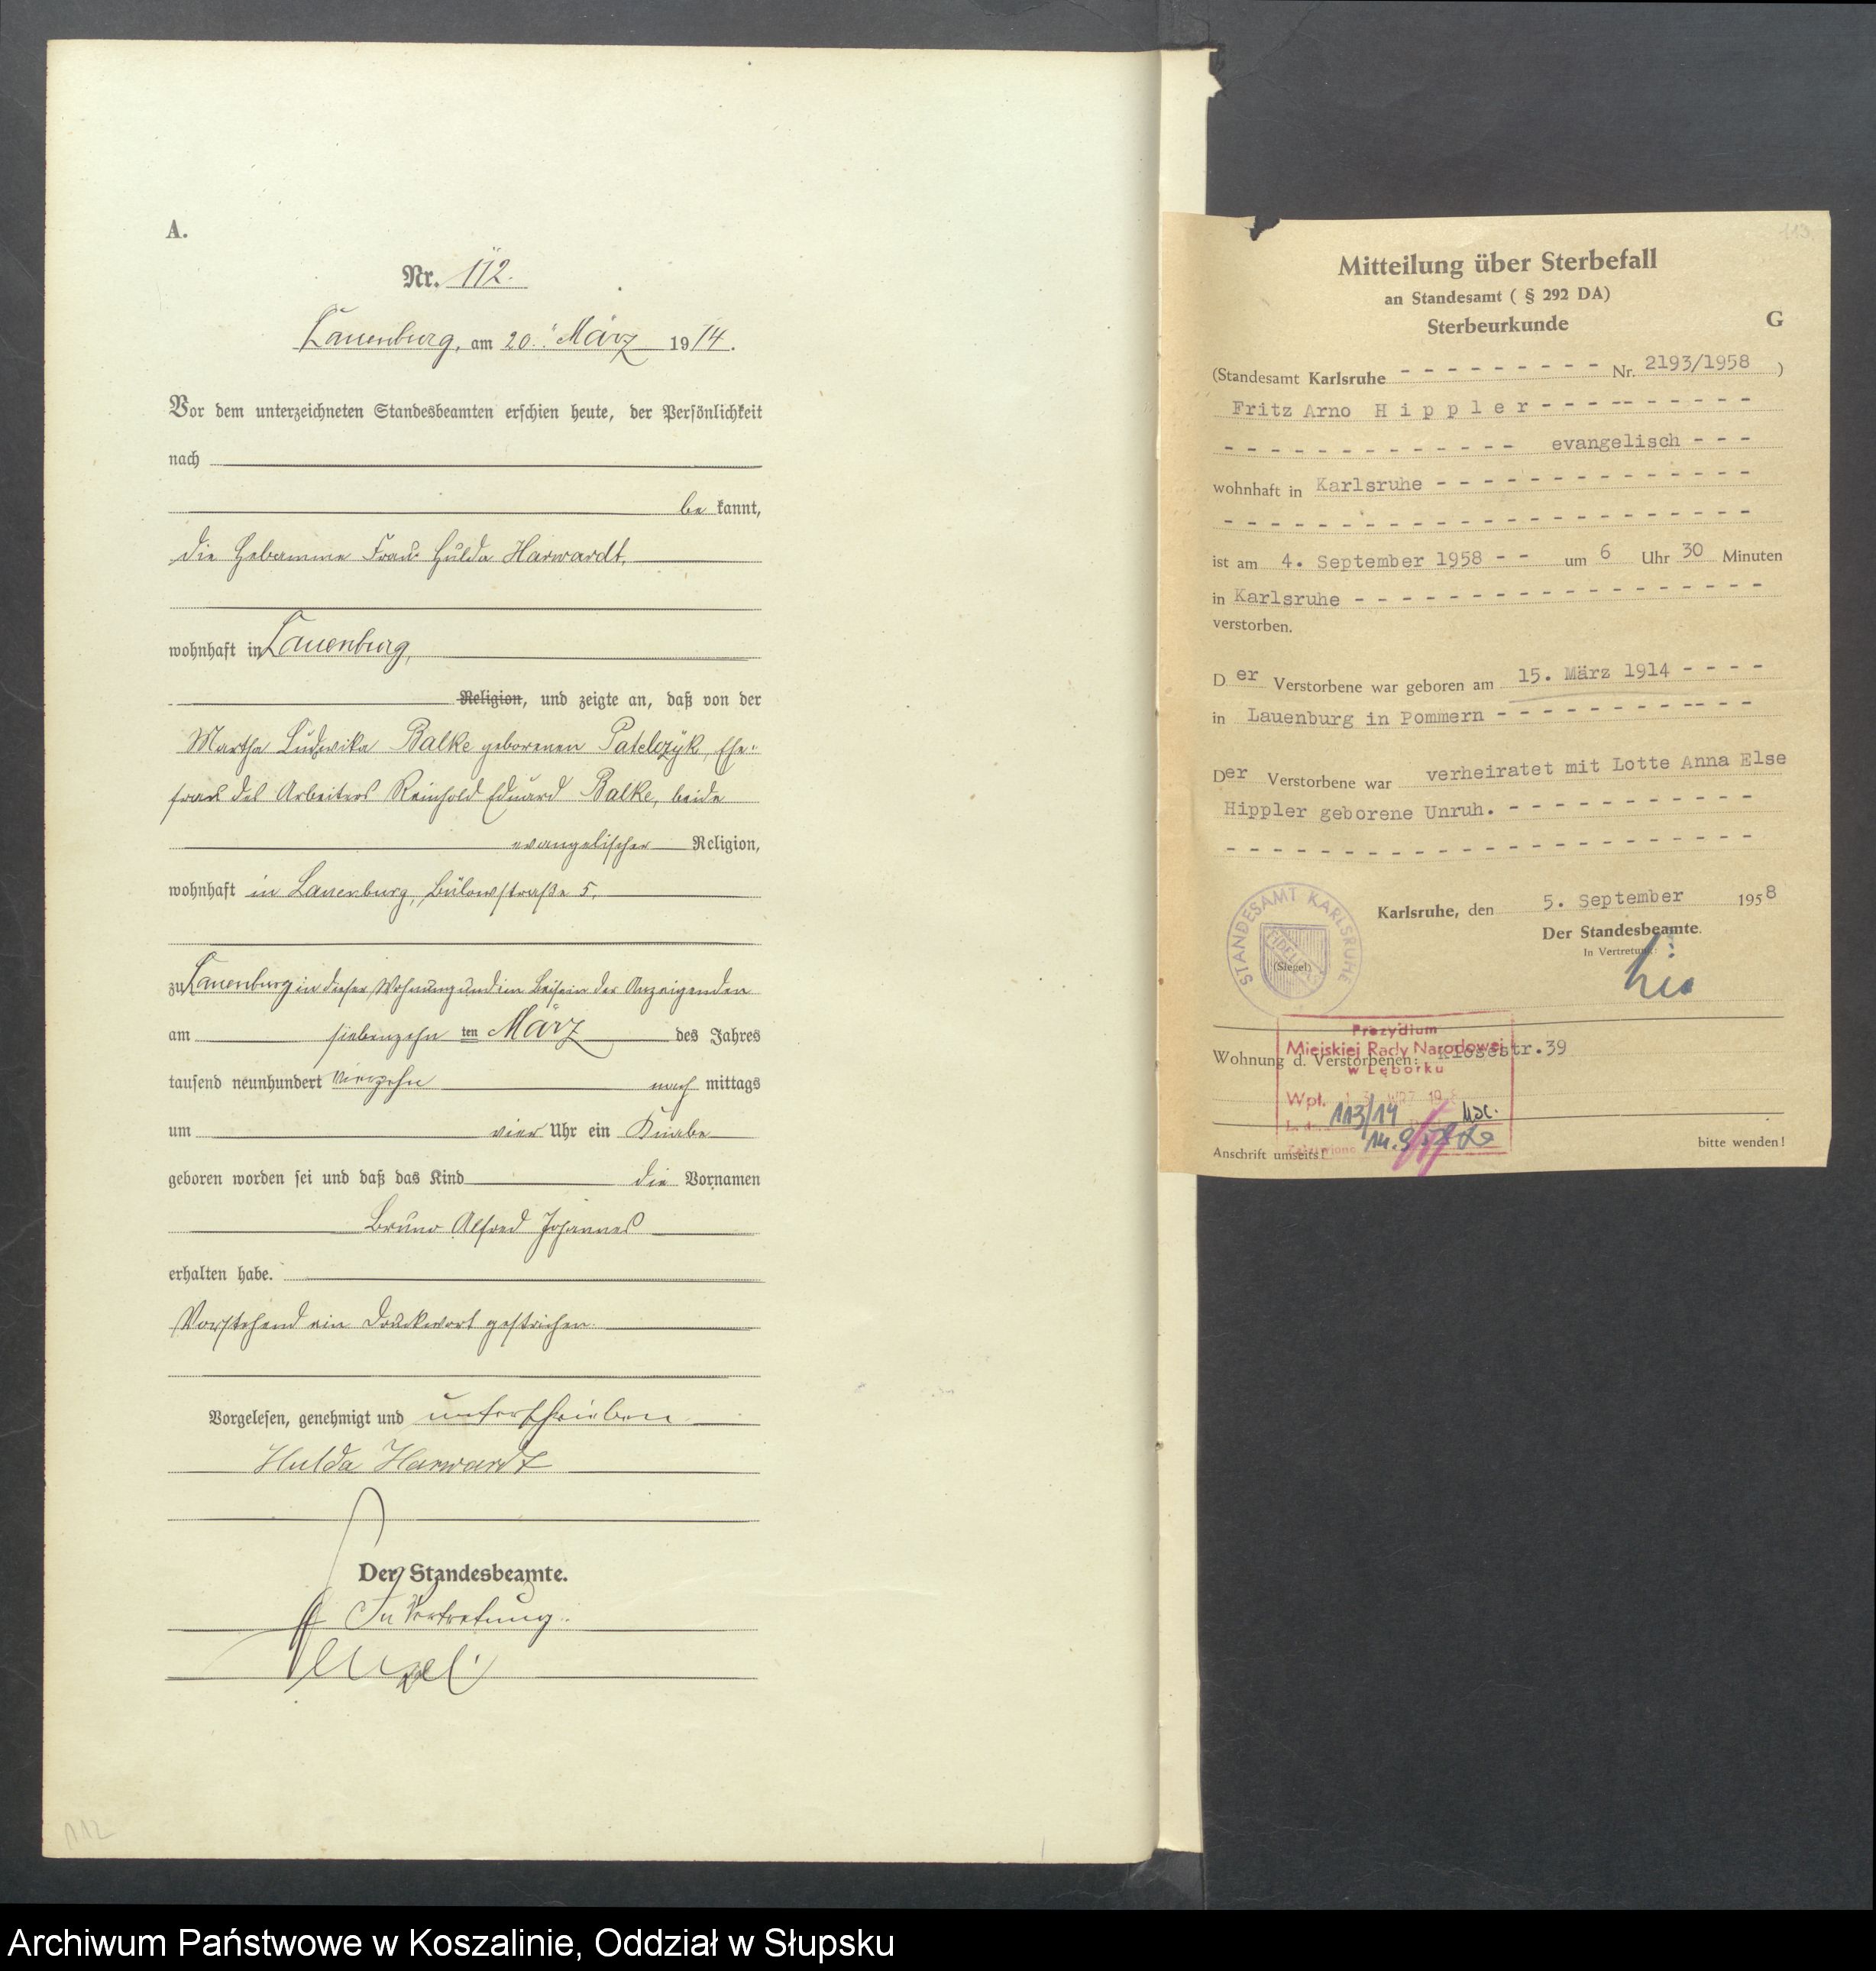 A.
Nr. 112.
Lauenburg, am 20. März 1914.
Vor dem unterzeichneten Standesbeamten erschien heute, der Persönlichkeit
nach
be kannt,
die Hebamme Frau Hulda Harwardt,
wohnhaft in Lauenburg,
Religion, und zeigte an, daß von der
Martha Ludwika Balke geborenen Patelczyk, Ehe-
frau des Arbeiters Reinhold Eduard Balke, beide
evangelischer Religion,
wohnhaft in Lauenburg, Bülowstraße 5,
zu Lauenburg in dieser Wohnung und im Beisein der Anzeigenden
am siebenzehn ten März des Jahres
tausend neunhundert vierzehn nach mittags
um vier Uhr ein Knabe
geboren worden sei und daß das Kind die Vornamen
Bruno Alfred Johannes
erhalten habe.
Vorstehend ein Druckwort gestrichen.
Vorgelesen, genehmigt und unterschrieben
Hulda Harwardt
Der Standesbeamte.
In Vertretung.
112
113
Mitteilung über Sterbefall
an Standesamt ( § 292 DA)
Sterbeurkunde G
(Standesamt Karlsruhe - - - - - - - - - Nr. 2193/1958 )
Fritz Arno H i p p l e r - - - - - - - - - -
- - - - - - - - - - - - - evangelisch - - -
wohnhaft in Karlsruhe - - - - - - - - - - - - - -
- - - - - - - - - - - - - - - - - - - - - - -
ist am 4. September 1958 - - um 6 Uhr 30 Minuten
in Karlsruhe - - - - - - - - - - - - - - - - - -
verstorben.
Der Verstorbene war geboren am 15. März 1914 - - - -
in Lauenburg in Pommern - - - - - - - - - - - -
Der Verstorbene war verheiratet mit Lotte Anna Else
Hippler geborene Unruh. - - - - - - - - - - -
- - - - - - - - - - - - - - - - - - - - - - -
STANDESAMT KARLSRUHE
FIDELITAS
(Siegel)
Karlsruhe, den 5. September 1958
Der Standesbeamte.
In Vertretung:
Prezydium
Miejskiej Rady Narodowej
w Lęborku
Wohnung d. Verstorbenen: Klosestr.39
Wpł.
113/14 USC.
14.9.58
Anschrift umseits! bitte wenden!
Archiwum Państwowe w Koszalinie, Oddział w Słupsku